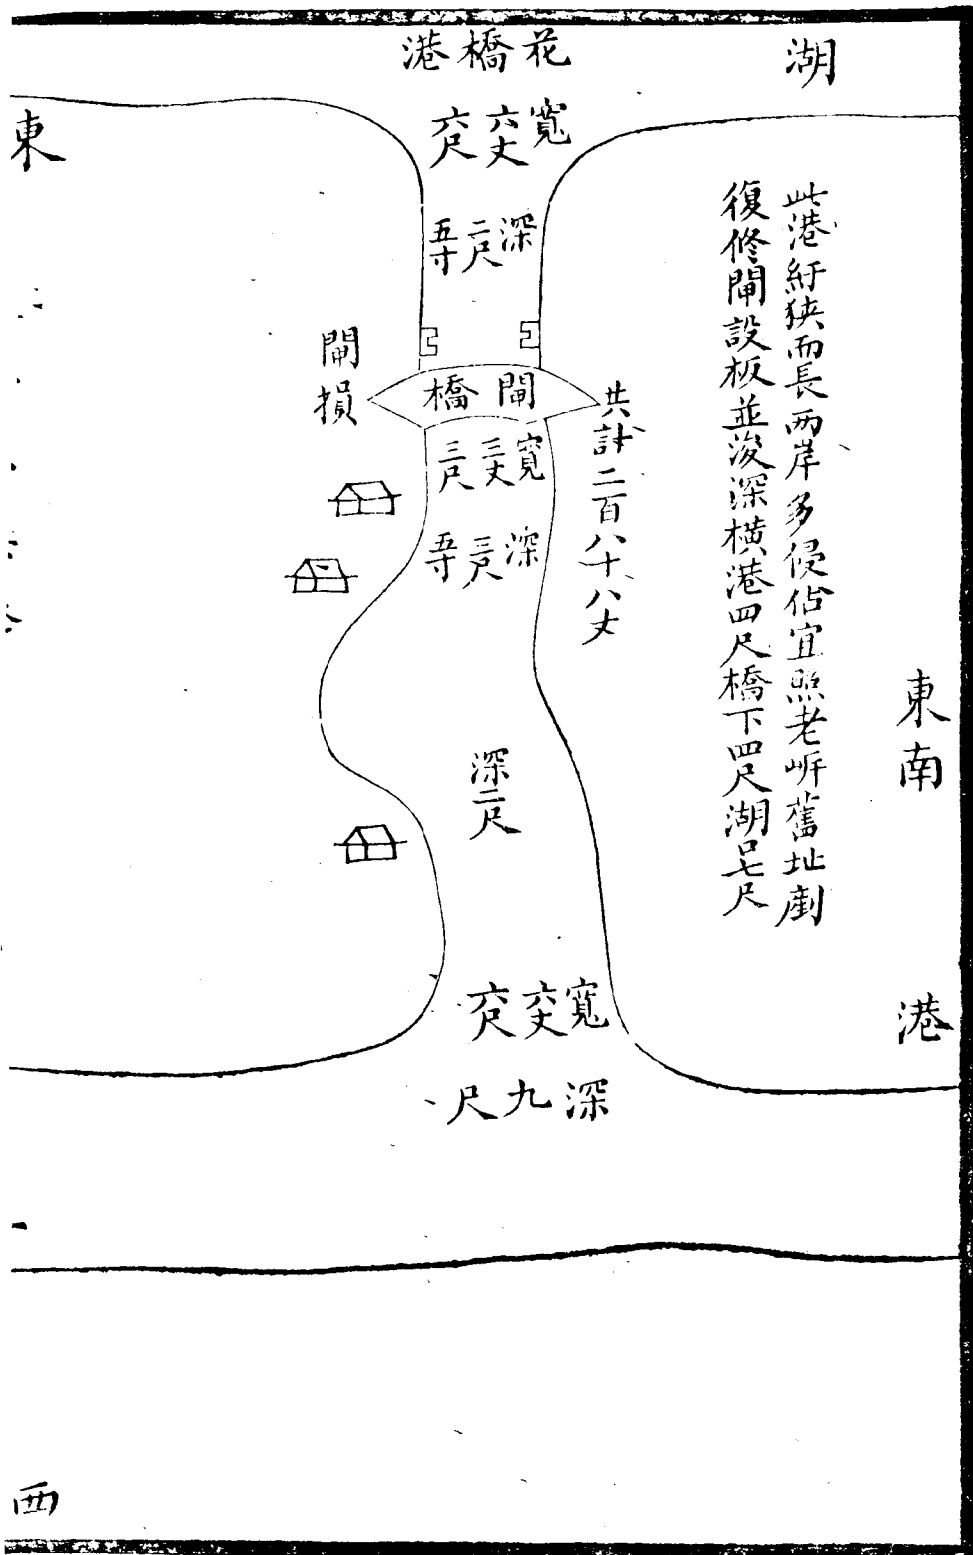 湖
東南
港
此港紆狹而長兩岸多侵佔宜照老岍舊址剷
復修閘設板並浚深橫港四尺橋下四尺湖口七尺
花橋港
寬六丈六尺
深二尺五寸
閘橋
閘損
共計二百八十八丈
寬三丈三尺
深三尺五寸
深二尺
寬六丈六尺
深九尺
東
西